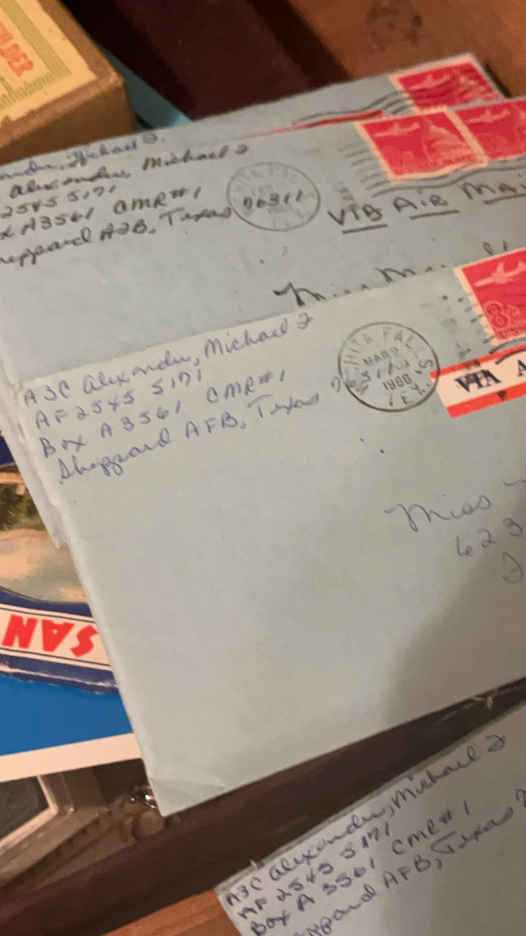 Alexander, Michael J
2545 5171
Box A3561 CMR#1
Sheppard AFB, Texas 76311
VIA AIR MAIL
A3C Alexander, Michael J
AF 2545 5171
Box A3561 CMR#1
Sheppard AFB, Texas 76311
WICHITA FALLS
MAR
1966
TEXAS
8¢
VIA A
Miss
623
SAN
A3C Alexander, Michael J
AF 2545 5171
Box A 3561 CMR#1
Sheppard AFB, Texas 7